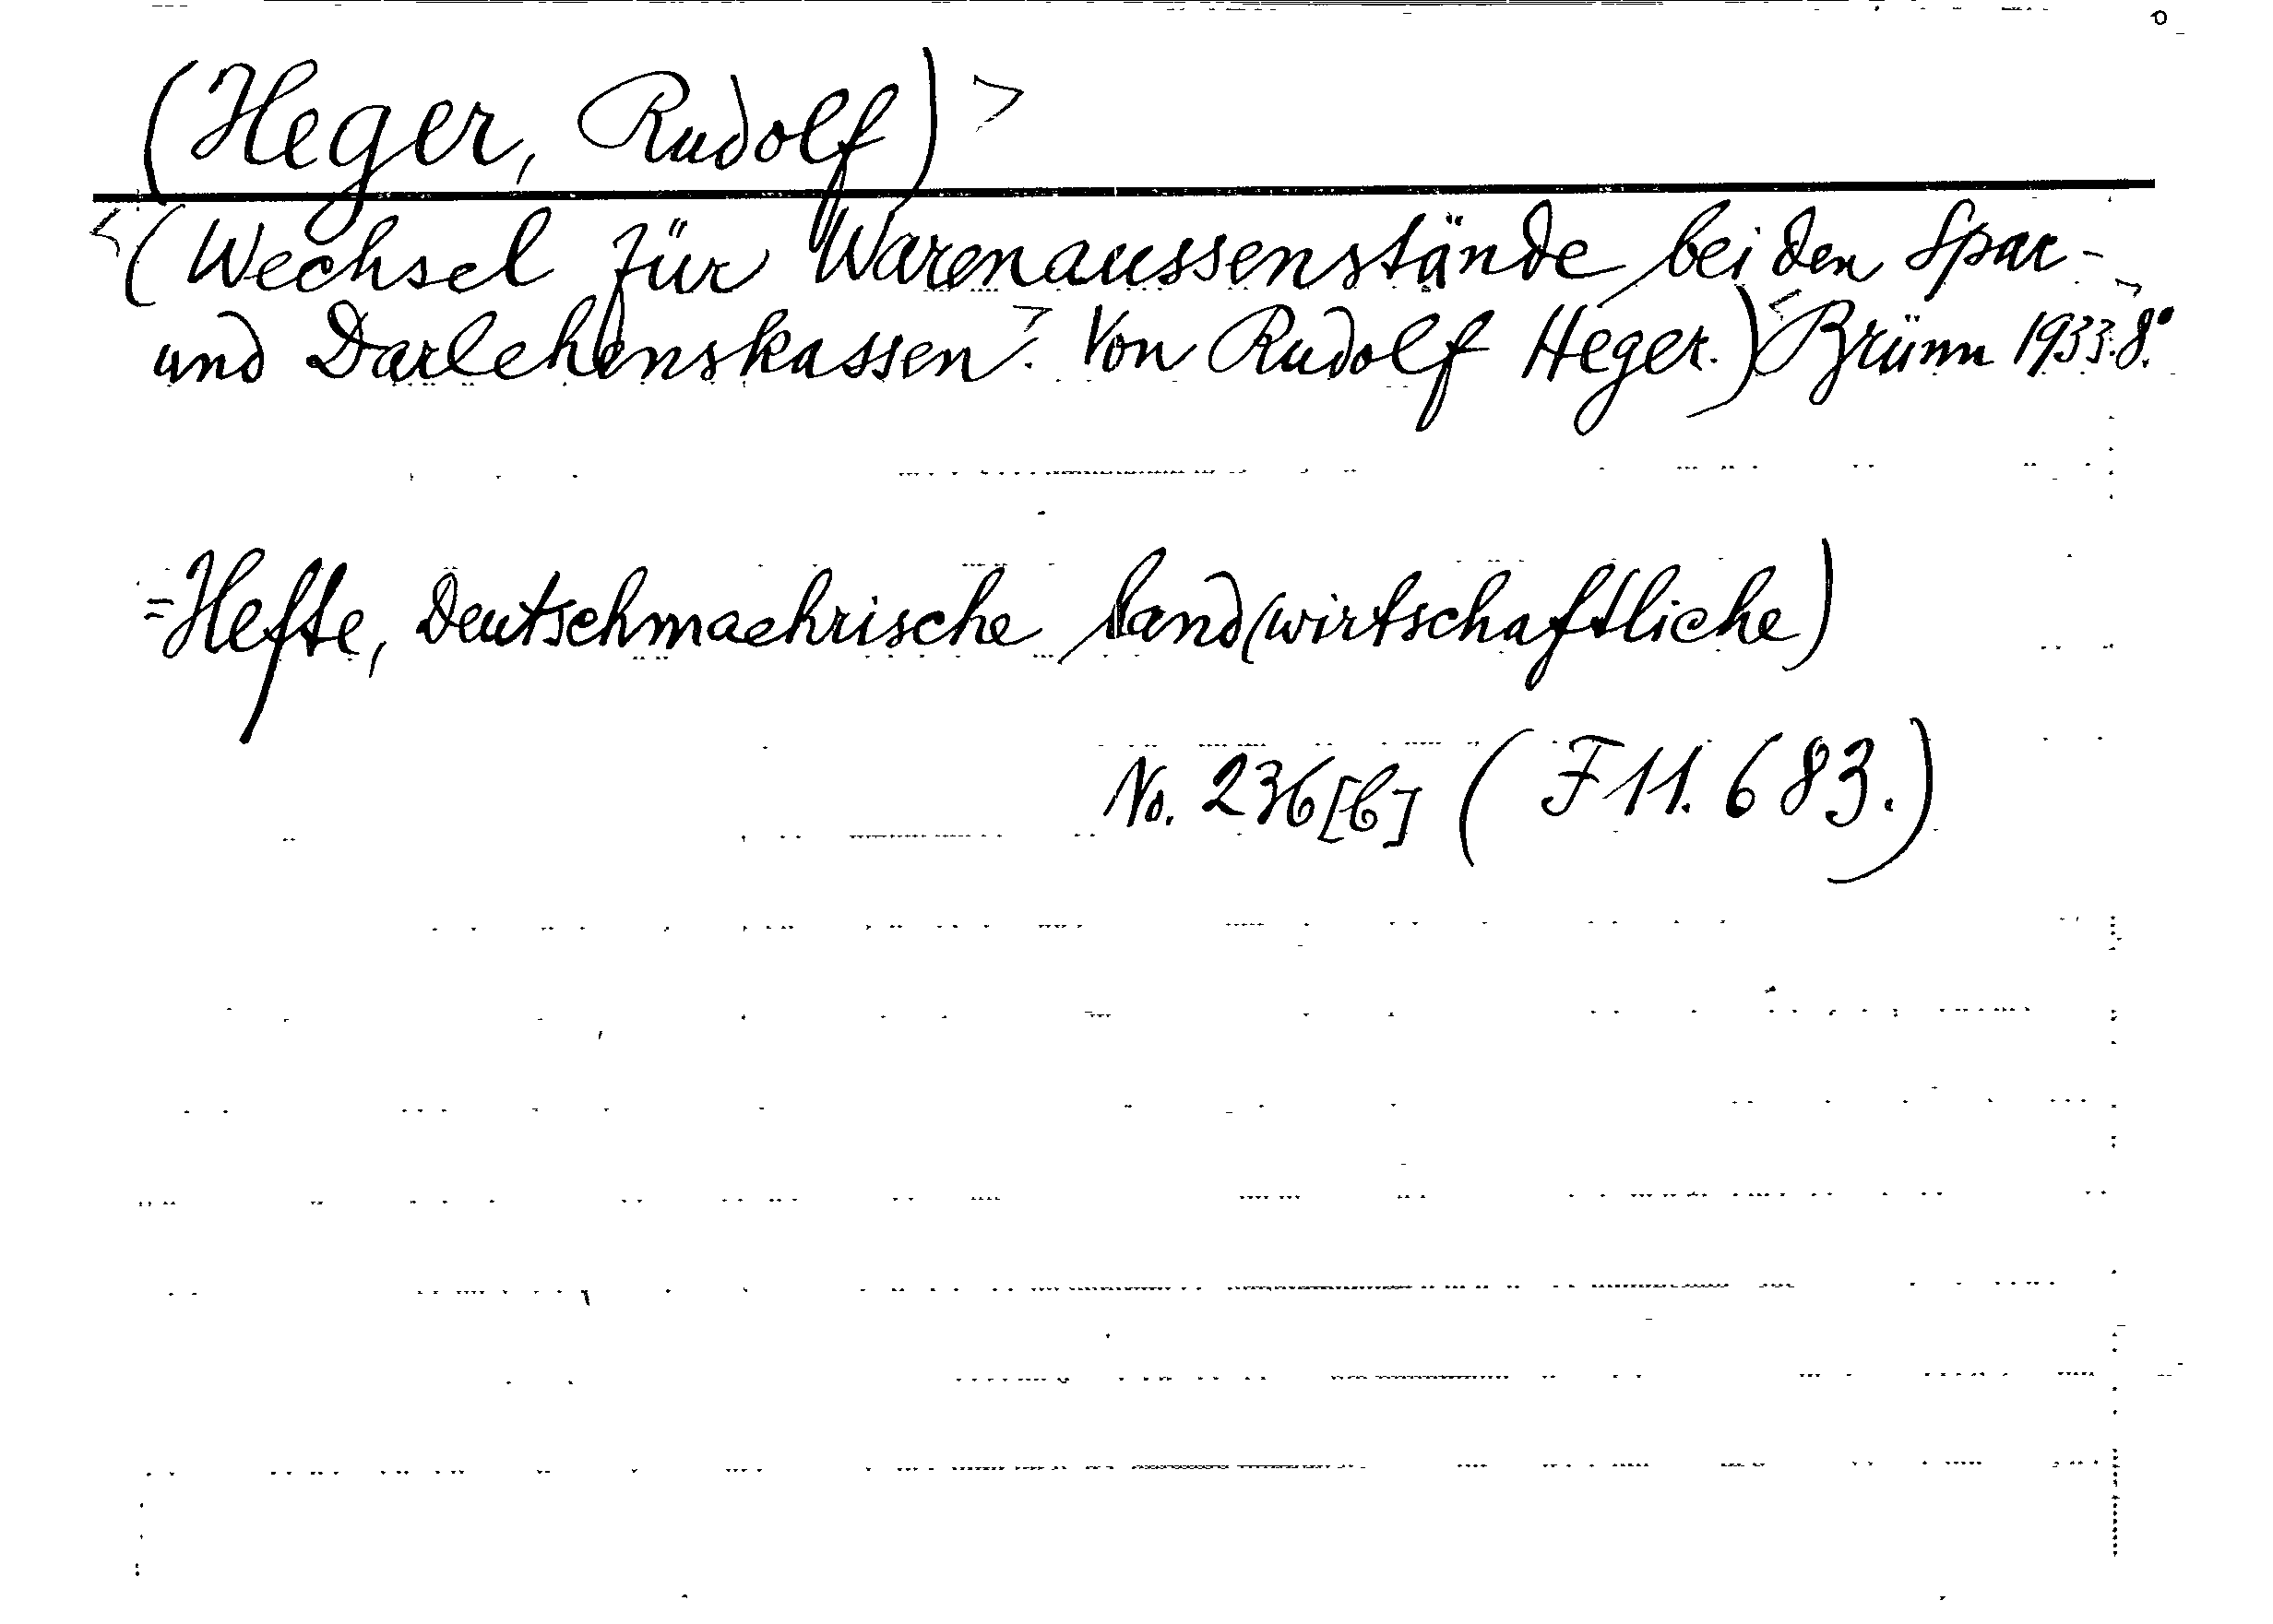 (Heger, Rudolf)>
<(Wechsel für Warenaussenstände bei den Spar-
und Darlehenskassen>. Von Rudolf Heger.)<Brünn 1933.8°.>
=Hefte, Deutschmaehrische land(wirtschaftliche)
No. 236[b] (F 11.683.)